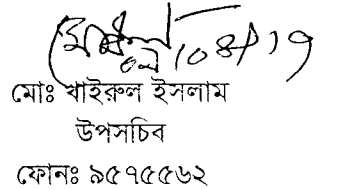 মোঃ খাইরুল ইসলাম
উপসচিব
ফোনঃ ৯৫৭৫৫৬২